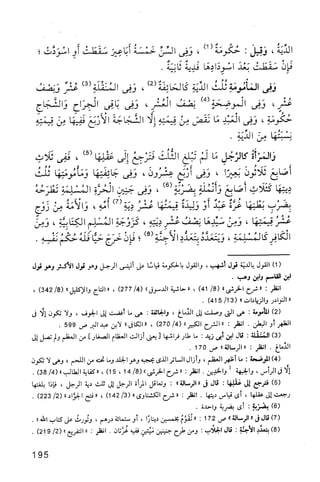 الدِّيَةُ ، وَقِيلَ : حُكُومَةٌ (١) ، وَفِى السِّنِّ خَمْسَةُ أَبَاعِيرَ سَقَطَتْ أَوِ اسْوَدَّتْ ؛
فَإِنْ سَقَطَتْ بَعْدَ اسْوِدَادِهَا فَدِيَةٌ ثَانِيَةٌ .
وَفِى المَأْمُومَةِ ثُلُثُ الدِّيَةِ كَالجَائِفَةِ (٢) ، وَفِى المُنَقِّلَةِ (٣) عُشْرٌ وَنِصْفُ
عُشْرٍ ، وَفِى المُوضِحَةِ (٤) نِصْفُ العُشْرِ ، وَفِى بَاقِى الجِرَاحِ وَالشِّجَاجِ
حُكُومَةٌ ، وَفِى العَبْدِ مَا نَقَصَ مِنْ قِيمَتِهِ إِلَّا الشِّجَاجَةَ الأَرْبَعَ فَفِيهَا مِنْ قِيمَتِهِ
نِسْبَتُهَا مِنَ الدِّيَةِ .
وَالمَرْأَةُ كَالرَّجُلِ مَا لَمْ تَبْلُغِ الثُّلُثَ فَتَرْجِعُ إِلَى عَقْلِهَا (٥) ، فَفِى ثَلَاثِ
أَصَابِعَ ثَلَاثُونَ بَعِيرًا ، وَفِى أَرْبَعٍ عِشْرُونَ ، وَفِى جَائِفَتِهَا وَمَأْمُومَتِهَا ثُلُثُ
دِيَتِهَا كَثَلَاثِ أَصَابِعَ وَأَنْمُلَةٍ بِضَرْبَةٍ (٦) ، وَفِى جَنِينِ الحُرَّةِ المُسْلِمَةِ تَطْرَحُهُ
بِضَرْبِ بَطْنِهَا غُرَّةٌ عَبْدٌ أَوْ وَلِيدَةٌ قِيمَتُهَا عُشْرُ دِيَةِ (٧) أُمِّهِ ، وَالأَمَةِ مِنْ زَوْجٍ
عُشْرُ قِيمَتِهَا ، وَمِنْ سَيِّدِهَا نِصْفُ عُشْرِ دِيَتِهِ ، كَزَوْجَةِ المُسْلِمِ الكِتَابِيَّةِ ، وَمِنَ
الكَافِرِ كَالمُسْلِمَةِ ، وَيَتَعَدَّدُ بِتَعَدُّدِ الأَجِنَّةِ (٨) ، فَإِنْ خَرَجَ حَيًّا فَلَهُ حُكْمُ نَفْسِهِ .
(١) القول بالدية قول أشهب ، والقول بالحكومة قياسًا على أنثيى الرجل وهو قول الأكثر وهو قول
ابن القاسم وابن وهب .
انظر : « شرح الخرشى » (8/ 41) ، « حاشية الدسوقى » (4/ 277) ، « التاج والإكليل » (8/ 342) ،
« النوادر والزيادات » (13/ 415) .
(٢) المأمومة : هى التى وصلت إلى الدماغ ، والجائفة : هى ما أفضت إلى الجوف ، ولا تكون إلا فى
الظهر أو البطن . انظر : « الشرح الكبير » (4/ 270) ، « الكافى » لابن عبد البر ص 599 .
(٣) المنقلة : قال ابن أبى زيد : ما طار فراشها [ يعنى أزالت العظام الصغار ] من العظم ولم تصل إلى
الدماغ . انظر : « الرسالة » ص 170 .
(٤) الموضحة : ما أظهر العظم ، وأزال الساتر الذى يحجبه وهو الجلد وما تحته من اللحم ، وهى لا تكون
إلا فى الرأس ، والجبهة ، والخدين . انظر : « شرح الخرشى » (8/ 14 ، 15) ، « كفاية الطالب » (4/ 38) .
(٥) فترجع إلى عقلها : قال فى « الرسالة » : وتعاقل المرأة الرجل إلى ثلث دية الرجل ، فإذا بلغتها
رجعت إلى عقلها ، أى قياس ديتها . انظر : « شرح الكشناوى » (3/ 142) ، « فتح الجواد » (2/ 223) .
(٦) بضربة : أى بضربة واحدة .
(٧) قال فى « الرسالة » ص 172 : « تُقَوَّمُ بخمسين دينارًا ، أو ستمائة درهم ، وتُورَثُ على كتاب الله » .
(٨) بتعدد الأجنة : قال الجلاب : ومن طرح جنينين ميتين ففيه غرتان . انظر : « التفريع » (2/ 219) .
195